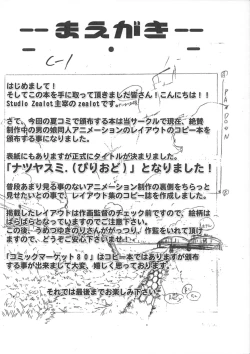 -- まえがき --
C-1
はじめまして！
そしてこの本を手に取って頂きました皆さん！こんにちは！！
Studio Zealot主宰のzealotです
さて、今回の夏コミで頒布する本は当サークルで現在、絶賛
制作中の男の娘同人アニメーションのレイアウトのコピー本を
頒布する事になりました。
表紙にもありますが正式にタイトルが決まりました。
「ナツヤスミ.(ぴりおど)」となりました！
普段あまり見る事のないアニメーション制作の裏側をちらっと
見せたいとの事で、レイアウト集のコピー誌を作成しました。
掲載したレイアウトは作画監督のチェック前ですので、絵柄は
ばらばらとなっていますのでご注意下さい。
この後、うめつゆきのりさんがばっつり、作監をいれて頂け
ますので、どうぞご安心下さいませ
「コミックマーケット80」はコピー本ではありますが頒布
する事が出来まして大変、嬉しく思っております。
それでは最後までお楽しみ下さい
PAN DOWN